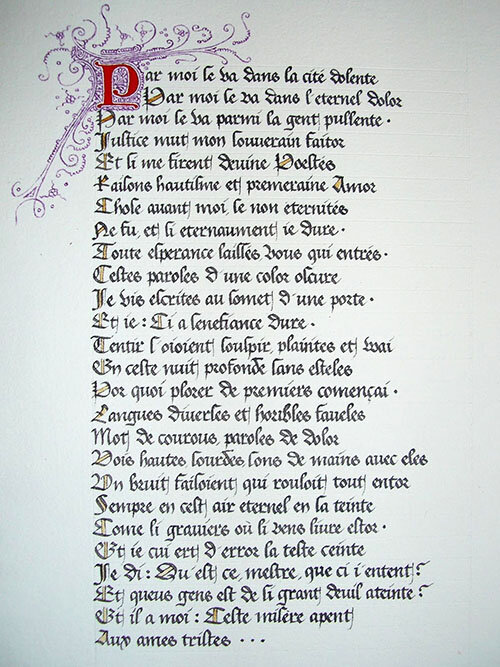 Par moi se va dans la cité dolente
Par moi se va dans l'eternel dolor
Par moi se va parmi la gent pullente.
Justice mut mon souverain faitor
Et si me firent devine Poestés
Raisons hautisme et premeraine Amor
Chose avant moi se non eternités
Ne fu, et si eternaument je dure.
Toute esperance laissés vous qui entrés.
Cestes paroles d'une color oscure
Je vis escrites au somet d'une porte.
Et je : Ci a senefiance dure.
Tentir s'oioient souspir, plaintes et wai
En ceste nuit profonde sans esteles
Por quoi plorer de premiers començai.
Langues diverses et horibles faveles
Mot de courous, paroles de dolor
Vois hautes sourdes sons de mains avec eles
Un bruit faisoient qui rouloit tout entor
Sempre en cest air eternel en sa teinte
Come li graviers où li vens livre estor.
Et je cui ert d'error la teste ceinte
Je di : Qu'est ce, mestre, que ci j'entent?
Et queus gens est de si grant deuil ateinte?
Et il a moi : Ceste misère apent
Aux ames tristes ...